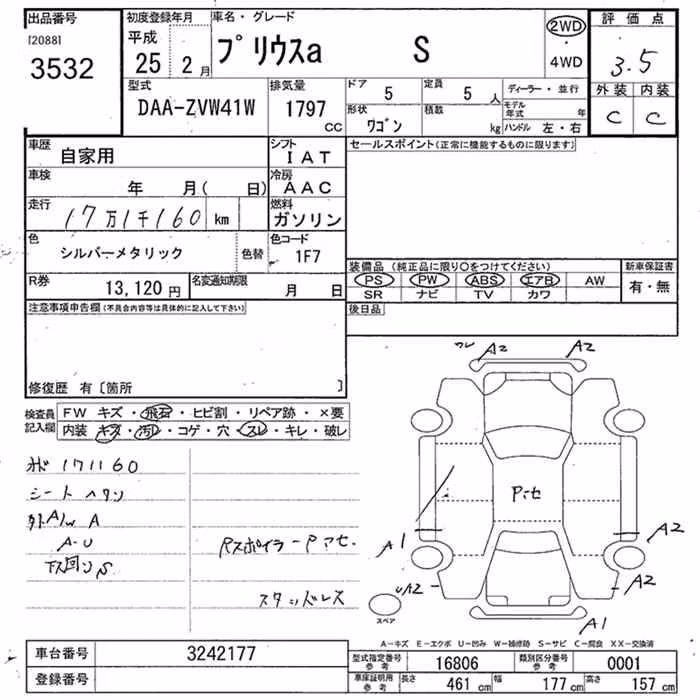 出品番号 初度登録年月 車名・グレード 評価点
[2088]
3532
平成 25 2月
プリウスα S
2WD・4WD
3.5
型式 排気量 ドア 5 定員 5人 ディーラー・並行 外装 内装
DAA-ZVW41W 1797 CC 形状 ワゴン 積載 kg モデル年式 年 ハンドル 左・右 C C
車歴 自家用 シフト IAT セールスポイント(正常に機能するものに限ります)
車検 年 月( 日) 冷房 AAC
走行 17万1千160 km 燃料 ガソリン
色 シルバーメタリック 色替 色コード 1F7
装備品 (純正品に限り○をつけてください) 新車保証書
PS PW ABS エアB AW 有・無
SR ナビ TV カワ
R券 13,120円 名変通知期限 月 日
後日品
注意事項申告欄(不具合内容等は具体的に記入して下さい)
修復歴 有〔箇所 〕
検査員記入欄 FW キズ・飛石・ヒビ割・リペア跡・×要
内装 キズ・汚れ・コゲ・穴・スレ・キレ・破レ
171160
シート ヘタリ
外A/W A
A-U
下回リS
Rスポイラー Pアセ.
スタッドレス
A2 A2
Pアセ
A1 A2
A2 A2
A1
スペア
A-キズ E-エクボ U-凹み W-補修跡 S-サビ C-腐食 XX-交換済
車台番号 3242177
登録番号
型式指定番号 参考 16806 類別区分番号 参考 0001
車庫証明用 参考 長さ 461cm 幅 177cm 高さ 157cm